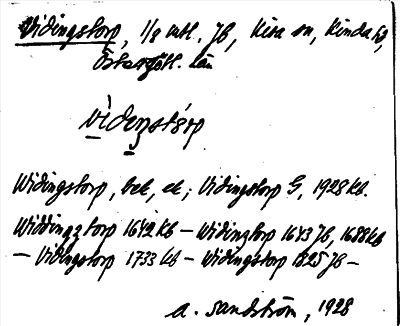 Vidingstorp, 1/8 mtl. Jb, Kisa sn, Kinda hd,
Östergötl. län
vìdenstǒrp
Widingstorp, bek, ek; Vidingstorp G, 1928 kb.
Widdingztorp 1642 kb – Widingtorp 1643 Jb, 1688 kb
– Vidingstorp 1733 kb – Widingstorp 1825 Jb –
A. Sandström, 1928